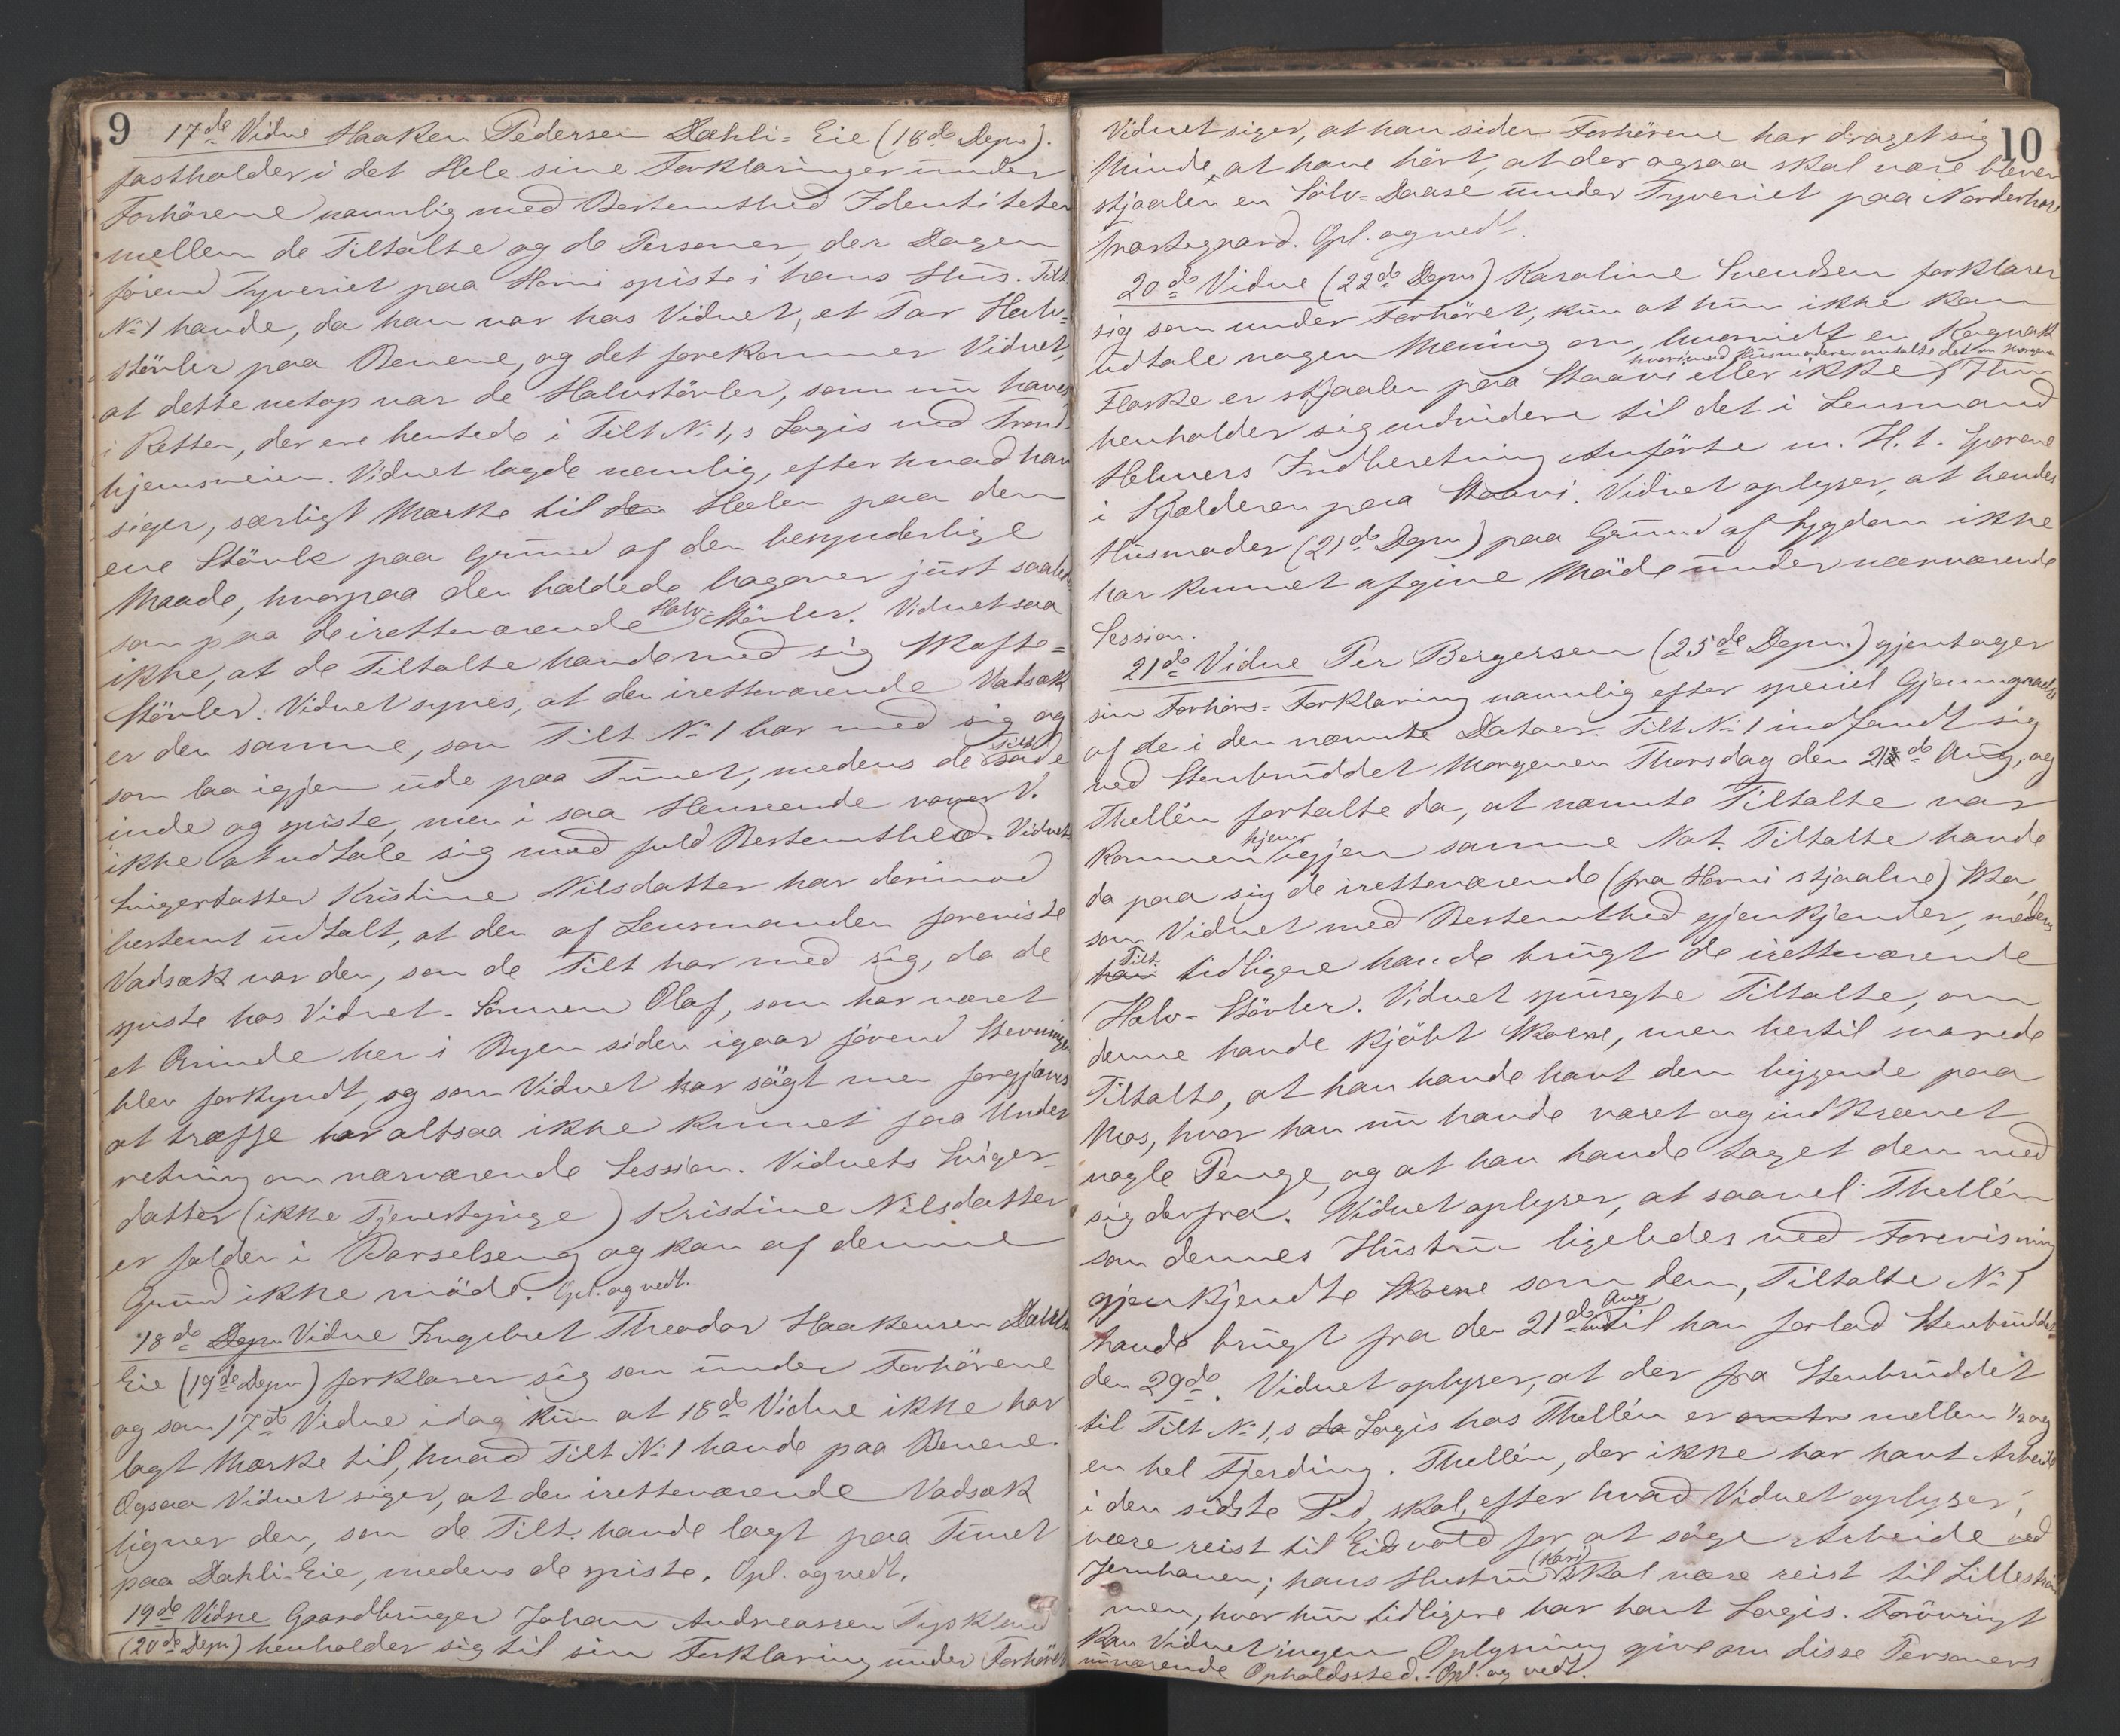 9
17de Vidne Haaken Pedersen Dæhli-Eie (18de Depn).
fastholder i det Hele sine Forklaringer under
Forhørene navnlig med Bestemthed Identiteten
mellem de Tiltalte og de Personer, der Dagen
førend Tyveriet paa Hovni spiste i hans Hus. Tilt.
No 1 havde, da han var hos Vidnet, et Par Halv-
støvler paa Benene, og det forekommer Vidnet,
at dette netop var de Halvstøvler, som nu haves
i Retten, der ere hentede i Tilt No 1,s Logis ved Trond-
hjemsveien. Vidnet lagde nemlig, efter hvad han
siger, særligt Mærke til den Hælen paa den
ene Støvle paa Grund af den besynderlige
Maade, hvorpaa den hældede bagover just saaledes
som paa de iretteværende Halv-Støvler. Vidnet saa
ikke, at de Tiltalte havde med sig Skafte-
støvler. Vidnet synes, at den iretteværende Vadsæk
er den samme, som Tilt No 1 har med sig og
som laa igjen ude paa Tunet, medens de Tilt sade
inde og spiste, men i saa Henseende vover V.
ikke at udtale sig med fuld Bestemthed. Vidnets
Svigerdatter Kristine Nilsdatter har derimod
bestemt udtalt, at den af Lensmanden foreviste
Vadsæk var den, som de Tilt har med sig, da de
spiste hos Vidnet. Sønnen Olaf, som har været
et Ærinde her i Byen siden igaar førend Stevningen
blev forkyndt, og som Vidnet har søgt men forgjæves
at træffe har altsaa ikke kunnet faa Under
retning om nærværende Session. Vidnets Sviger-
datter (ikke Tjenestepige) Kristine Nilsdatter
er falden i Barselseng og kan af denne
Grund ikke møde. Opl. og vedt.
18de Depn Vidne Ingebret Theodor Haakensen Dæhli
Eie (19de Depn) forklarer sig som under Forhørene
og som 17de Vidne idag kun at 18de Vidne ikke har
lagt Mærke til, hvad Tilt No 1 havde paa Benene.
Ogsaa Vidnet siger, at den iretteværende Vadsæk
ligner den, som de Tilt. havde lagt paa Tunet
paa Dahli-Eie, medens de spiste. Opl. og vedt.
19de Vidne Gaardbruger Johan Andreassen Tyskland
(20de Depn) henholder sig til sin Forklaring under Forhøret
10
Vidnet siger, at han siden Forhørene har draget sig
Minde, at have hørt, at der ogsaa skal være bleven
stjaalen en Sølv-Daase under Tyveriet paa Norderhov
Præstegaard. Opl. og vedt.
20de Vidne (22de Depn) Karoline Svendsen forklarer
sig som under Forhøret, kun at hun ikke kan
udtale nogen Mening om, hvorvidt en Kognak
hvorimod Husmoderen omtalte det om Morgenen
Flaske er stjaalen paa Staavi eller ikke. Hun
henholder sig endvidere til det i Lensmand
Helmers Indberetning Anførte m. H. t. Sporene
i Kjælderen paa Staavi. Vidnet oplyser, at hendes
Husmoder (21de Depn) paa Grund af Sygdom ikke
har kunnet afgive Møde under nærværende
Session.
21de Vidne Per Bergersen (25de Depn.) gjentager
sin Forhørs-Forklaring navnlig efter speciel Gjennemgaaelse
af de i den nævnte Datoer. Tilt No 1 indfandt sig
ved Stenbruddet Morgenen Thorsdag den 21de Aug, og
Thellén fortalte da, at nævnte Tiltalte var
kommen hjem igjen samme Nat. Tiltalte havde
da paa sig de iretteværende (fra Hovni stjaalne) Sko,
som Vidnet med Bestemthed gjenkjender, medens
han Tilt. tidligere havde brugt de iretteværende
Halv-Støvler. Vidnet spurgte Tiltalte, om
denne havde kjøbt Skoene, men hertil svarede
Tiltalte, at han havde havt dem liggende paa
Mos, hvor han nu havde været og indkrævet
nogle Penge, og at han havde taget dem med
sig derfra. Vidnet oplyser, at saavel Thellén
som dennes Hustru ligeledes ved Forevisning
gjenkjendte Skoene som dem, Tiltalte No 1
havde brugt fra den 21de Aug indtil han forlod Stenbruddet
den 29de. Vidnet oplyser, at der fra Stenbruddet
til Tilt No 1,s Logis hos Thellén er mellem 1/2 og
en hel Fjerding. Thellén, der ikke har havt Arbeide
i den sidste Tid, skal, efter hvad Vidnet oplyser,
være reist til Eidsvold for at søge Arbeide ved
Jernbanen; hans Hustru (Kari) skal være reist til Lillestrøm
men, hvor hun tidligere har havt Logis. Forøvrigt
kan Vidnet ingen Oplysning give om disse Personers
nuværende Opholdssted. Opl. og vedt.